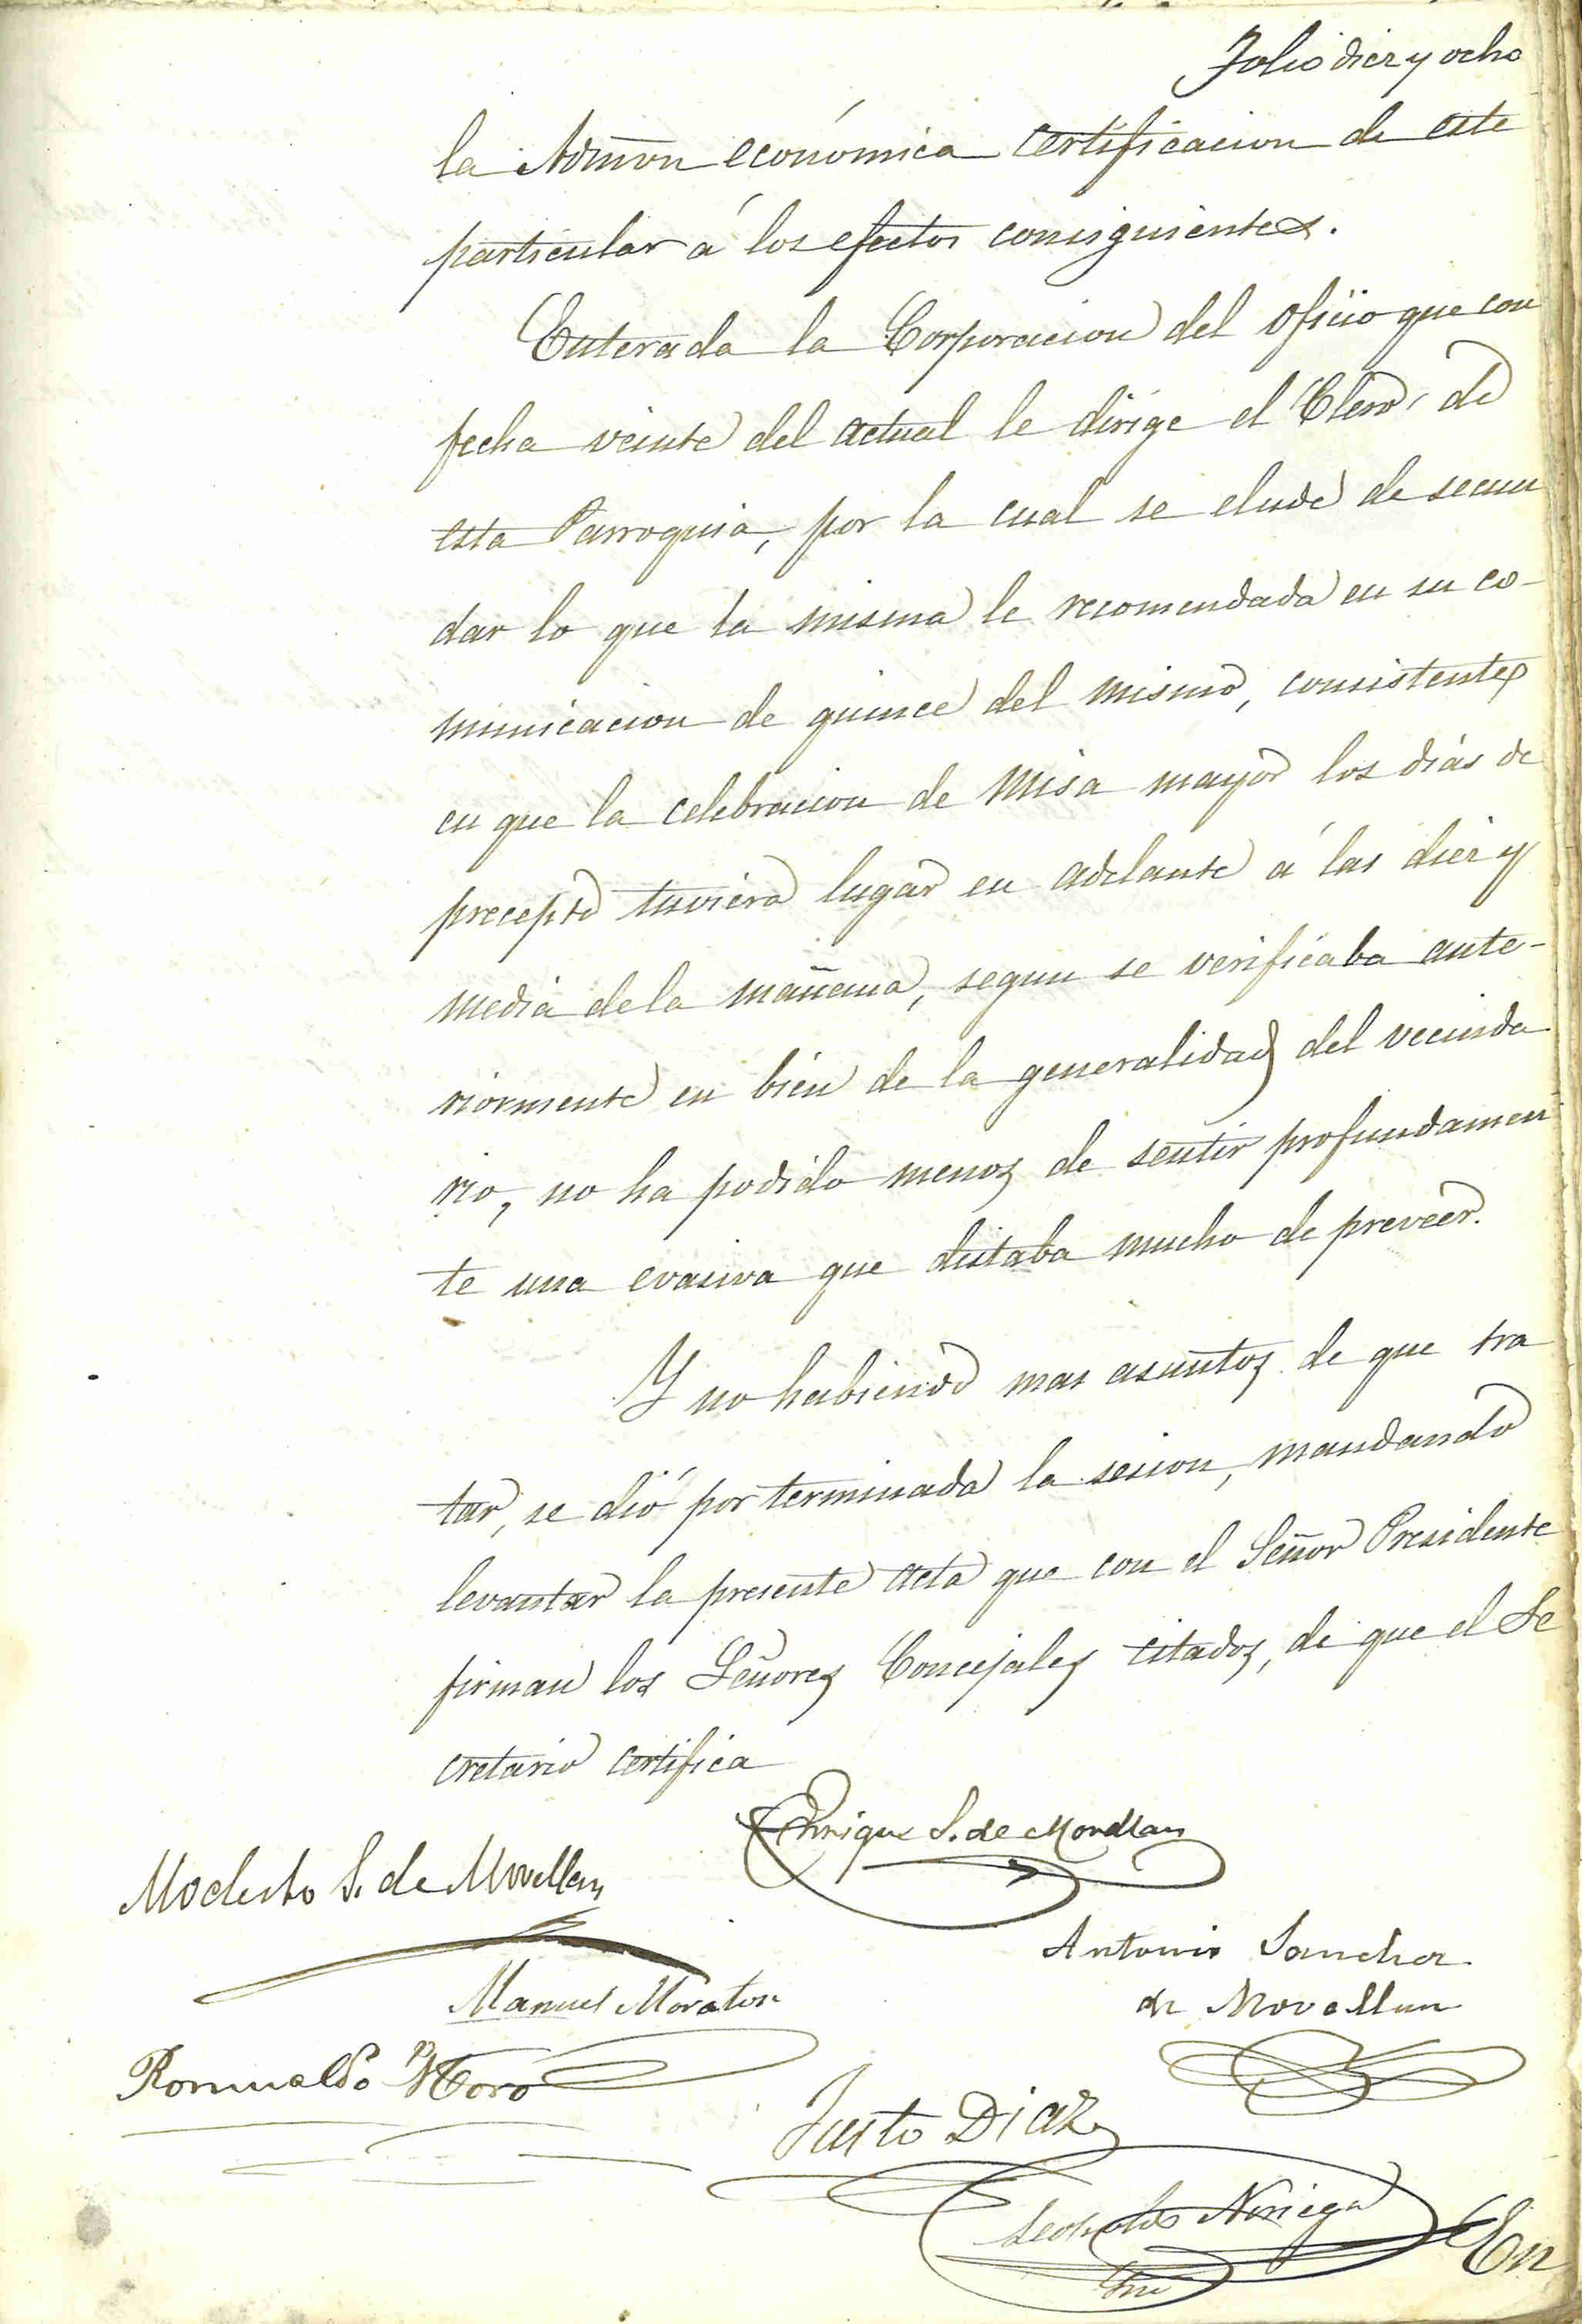 Folio diez y ocho
la Admon económica certificacion de este
particular á los efectos consiguientes.
Enterada la Corporacion del oficio que con
fecha veinte del actual le dirige el Clero de
esta Parroquia, por la cual se elude de secun
dar lo que la misma le recomendada en su co-
municacion de quince del mismo, consistente
en que la celebracion de Misa mayor los dias de
precepto tuviera lugar en adelante á las diez y
media de la mañana, segun se verificaba ante-
riormente en bien de la generalidad del vecinda
rio, no ha podido menos de sentir profundamen
te una evasiva que distaba mucho de preveer.
Y no habiendo mas asuntos de que tra
tar, se dió por terminada la sesion, mandando
levantar la presente acta que con el Señor Presidente
firman los Señores Concejales citados, de que el Se
cretario certifica
Enrique S. de Movellan
Modesto S. de Movellan
Antonio Sanchez
de Movellan
Manuel Moraton
Romualdo Toro
Justo Diaz
Leopoldo Noriega
En